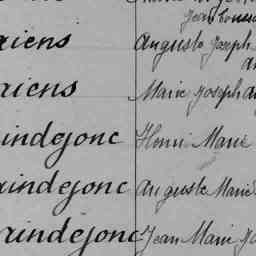 Jean Louis
riens Auguste Joseph
riens Marie Joseph
indejonc Henri Marie
rindejonc Auguste Marie
rindejonc Jean Marie